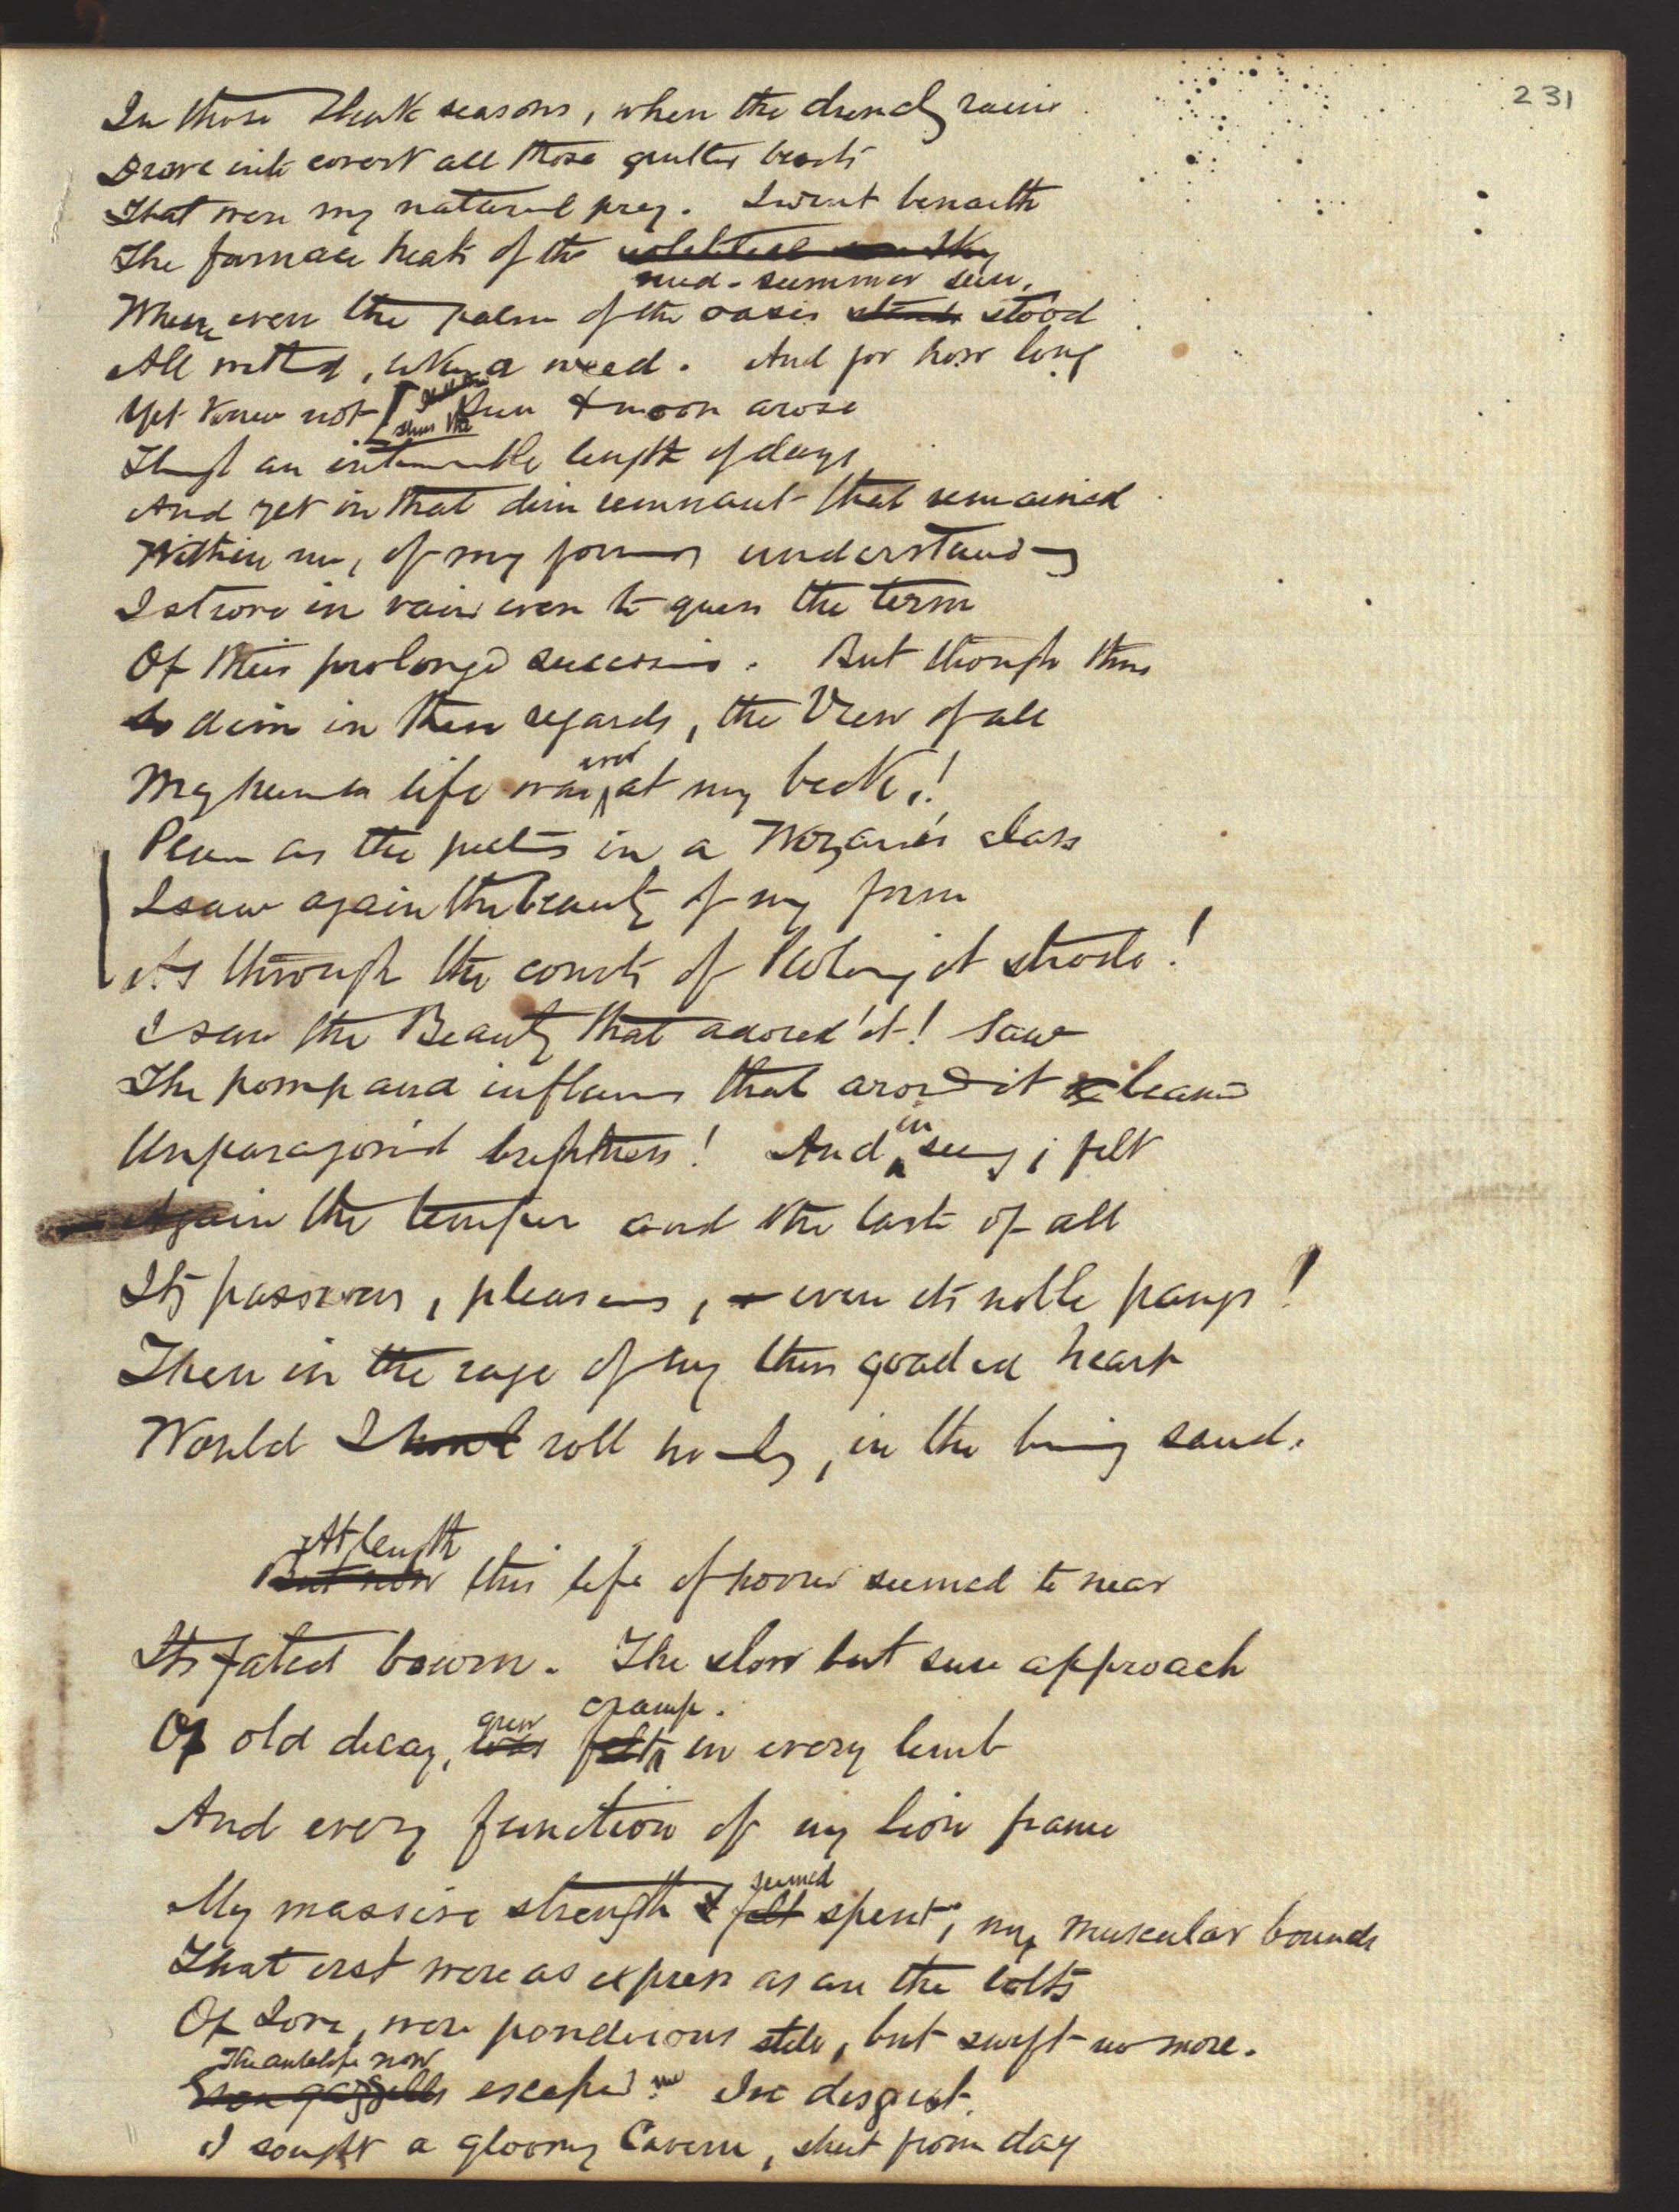 231
In those bleak seasons, when the drenching rains
Drove into covert all those gentler beasts
That were my natural prey. I went beneath
The furnace heats of the
mid-summer sun,
When even the palm of the oasis stands stood
All wither'd, like a weed. And for how long
Yet knew not thus the Sun & moon arose
Through an interminable length of days
And yet in that dim remnant that remained
Within me, of my former understanding
I strove in vain even to guess the term
Of their prolonged succession. But though thus
So dim in these regards, the View of all
My human life was ever at my beck!
Plain as the pictures in a Wizard's glass
I saw again the beauty of my form
As through the courts of Ptolemy it strode!
I saw the Beauty that adored it! Saw
The pomp and influence that around it beamed
Unparagon'd brightness! And in seeing, felt
Again the temper and the taste of all
Its passions, pleasures, even its noble pangs!
Then in the rage of my thus goaded heart
Would I howl roll hoarsely, in the burning sand.
At length
But now this life of horror seemed to near
Its fated bourn. The slow but sure approach
grew cramp.
Of old decay, was felt in every limb
And every function of my lion frame
seemed
My massive strength I felt spent, my muscular bounds
That erst were as express as are the bolts
Of Jove, were ponderous still, but swift no more.
The antelope now
Even gazelles escaped me In disgust
I sought a gloomy Cavern, shut from day